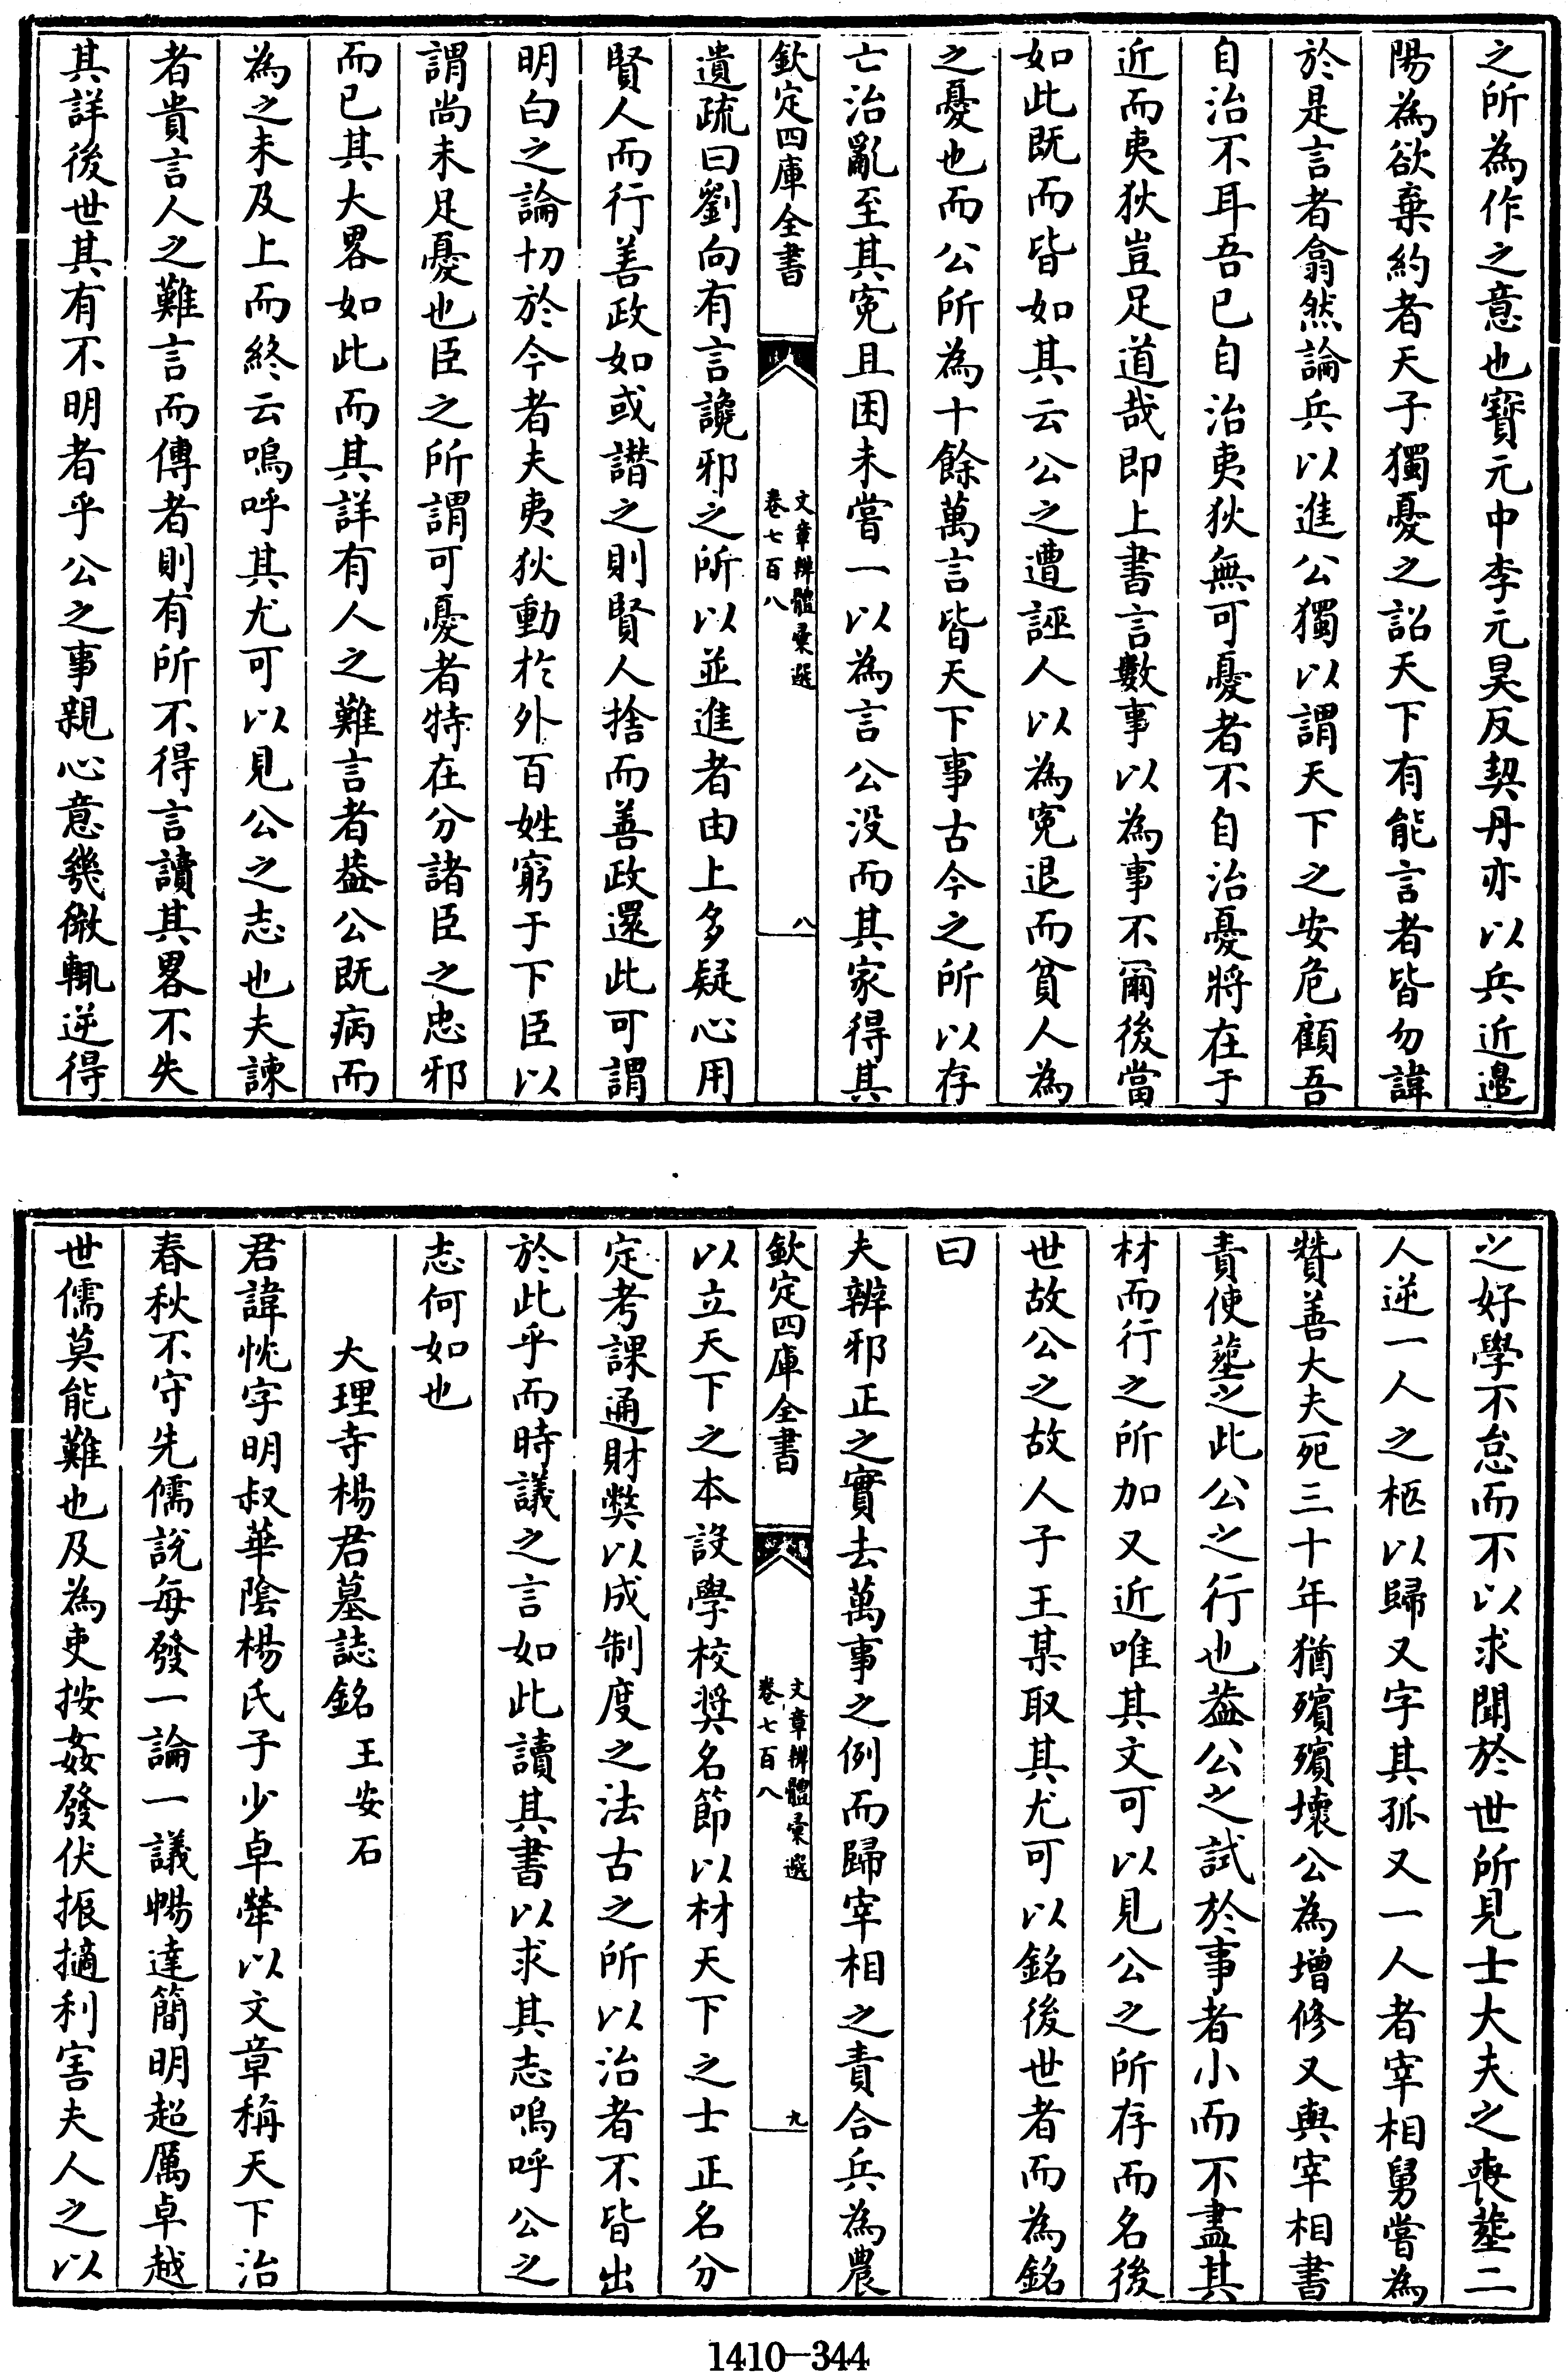 之所為作之意也寳元中李元昊反契丹亦以兵近邉
陽為欲棄約者天子獨憂之詔天下有能言者皆勿諱
於是言者翕然論兵以進公獨以謂天下之安危顧吾
自治不耳吾已自治夷狄無可憂者不自治憂將在于
近而夷狄豈足道哉即上書言數事以為事不爾後當
如此既而皆如其云公之遭誣人以為寃退而貧人為
之憂也而公所為十餘萬言皆天下事古今之所以存
亡治亂至其寃且困未嘗一以為言公没而其家得其
欽定四庫全書
文章辨體彚選
卷七百八
八
遺疏曰劉向有言讒邪之所以並進者由上多疑心用
賢人而行善政如或譖之則賢人捨而善政還此可謂
明白之論切於今者夫夷狄動於外百姓窮于下臣以
謂尚未足憂也臣之所謂可憂者特在分諸臣之忠邪
而已其大畧如此而其詳有人之難言者葢公既病而
為之未及上而終云嗚呼其尤可以見公之志也夫諫
者貴言人之難言而傳者則有所不得言讀其畧不失
其詳後世其有不明者乎公之事親心意幾微輒逆得
之好學不怠而不以求聞於世所見士大夫之喪塟二
人逆一人之柩以歸又字其孤又一人者宰相舅嘗為
賛善大夫死三十年猶殯殯壞公為增修又與宰相書
責使塟之此公之行也葢公之試於事者小而不盡其
材而行之所加又近唯其文可以見公之所存而名後
世故公之故人子王某取其尤可以銘後世者而為銘
曰
夫辨邪正之實去萬事之例而歸宰相之責合兵為農
欽定四庫全書
文章辨體彚選
卷七百八
九
以立天下之本設學校奨名節以材天下之士正名分
定考課通財幣以成制度之法古之所以治者不皆出
於此乎而時議之言如此讀其書以求其志嗚呼公之
志何如也
大理寺楊君墓誌銘 王安石
君諱忱字明叔華陰楊氏子少卓犖以文章稱天下治
春秋不守先儒說每發一論一議暢達簡明超厲卓越
世儒莫能難也及為吏按姦發伏振擿利害夫人之以
1410-344